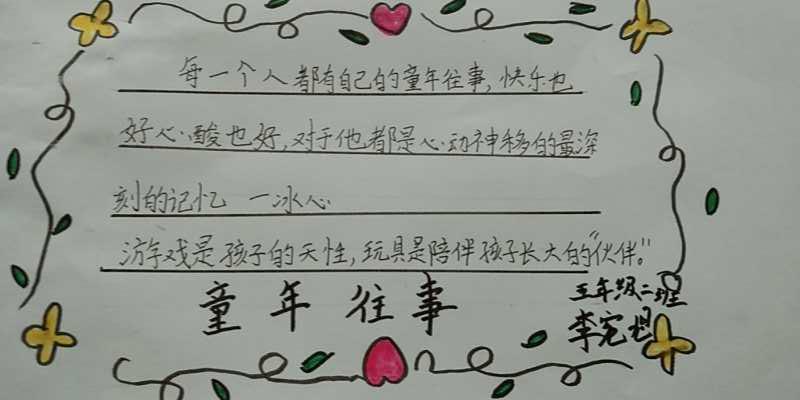 每一个人都有自己的童年往事,快乐也
好心酸也好,对于他都是心动神移的最深
刻的记忆 一冰心
游戏是孩子的天性,玩具是陪伴孩子长大的“伙伴。”
童年往事
五年级二班
李宛